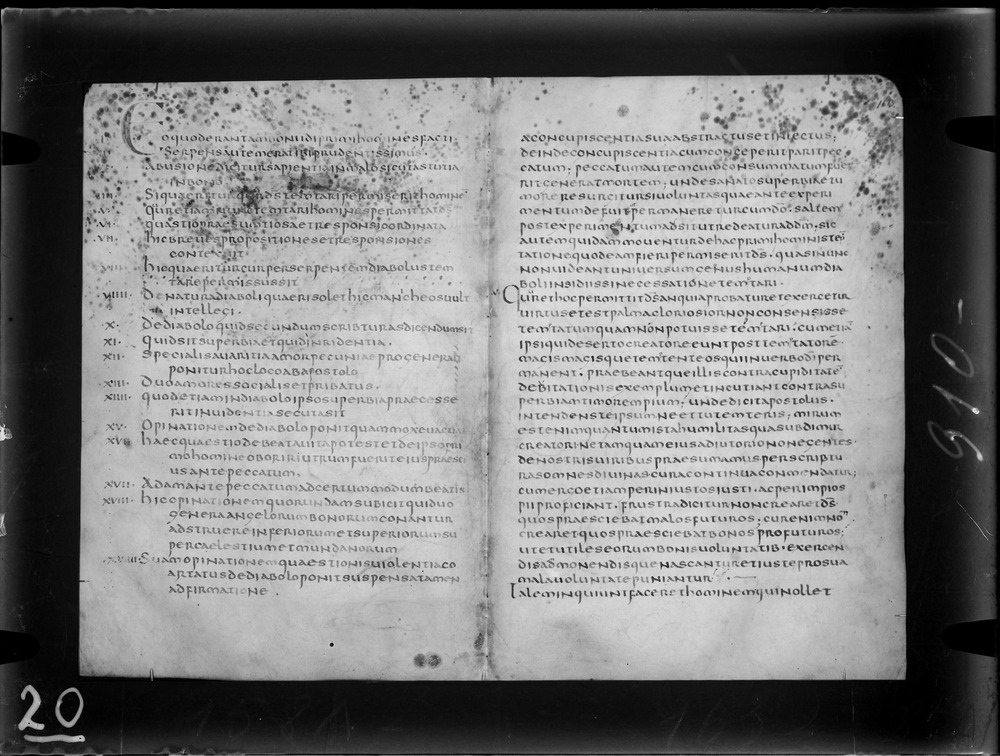 Eo quod erant ambo nudi primi homines facti
Serpens autem erat iste prudentissimus
abusione dicitur sapientia in malo sicut astutia
in bono
quaestio praesumtiosa et responsio ordinata
VII. hic breves propositiones et responsiones
contexuit
VIII. hic quaeritur cur per serpentem diabolus tem
tare permissus sit
VIIII. De natura diaboli quae erisol et hic manicheos vult
intellegi.
X. de diabolo quid secundum scribturas dicendum sit
XI. quid sit superbia et quid invidentia.
XII. specialis avaritia amor pecuniae pro general
ponitur hoc loco ab apostolo
XIII. duo amores socialis et pribatus.
XIIII. quod etiam in diabolo ipso superbia praecesse
rit invidentia secuta sit
XV. Opinationem de diabolo ponit quam mox evacua
XVI. haec quaestio de beata vita potest et de ipso pri
mo homine oboriri utrum fuerit eius praesci
us ante peccatum.
XVII. Adam ante peccatum ad certum modum beatus
XVIII. hic opinationem quorundam subicit qui duo
genera angelorum bonorum conantur
adstruere inferiorum et superiorum su
percaelestium et mundanorum
XVIIII. Suam opinationem quaestionis violentia co
artatus de diabolo ponit suspensa tamen
adfirmatione.
a concupiscentia sua abstractus et inlectus;
deinde concupiscentia cum conceperit parit pec
catum; peccatum autem cum consummatum fue
rit generat mortem; unde sanato superbiae tu
more resurgit si voluntas quae ante experi
mentum defuit permanere tur cum dō. saltem
post experimentum adsit ut redeatur ad dm̄. sic
autem quidam moventur de hac primi hominis tem
tatione quod eam fieri permiserit ds̄. quasi nunc
non videant universum genus humanum dia
boli insidiis sine cessatione temtari.
Cur et hoc permittit ds̄ an quia probatur et exercetur
virtus et est palma gloriosior non consensisse
temtatum quam non potuisse temtari. cum etiā
ipsi qui deserto creatore eunt post temtatorē
magis magisque temtent eos qui in verbo dī per
manent. praebeantque illis contra cupiditatē
devitationis exemplum et incutiant contra su
perbiam timorem pium. unde dicit apostolus.
intendens te ipsum ne et tu temteris; mirum
est enim quantum ista humilitas qua subdimur
creatori ne tamquam eius adiutorio non egentes
de nostris viribus praesumamus per scribtu
ras omnes divinas cura continua commendatur;
cum ergo etiam per iniustos iusti. ac per impios
pii proficiant. frustra dicitur non crearet ds̄
quos praesciebat malos futuros; cur enim nō
crearet quos praesciebat bonis profuturos;
ut et utiles eorum bonis voluntatib. exercen
dis admonendisque nascantur et iuste pro sua
mala voluntate puniantur.
Talem inquiunt faceret hominem qui nollet
20
810-